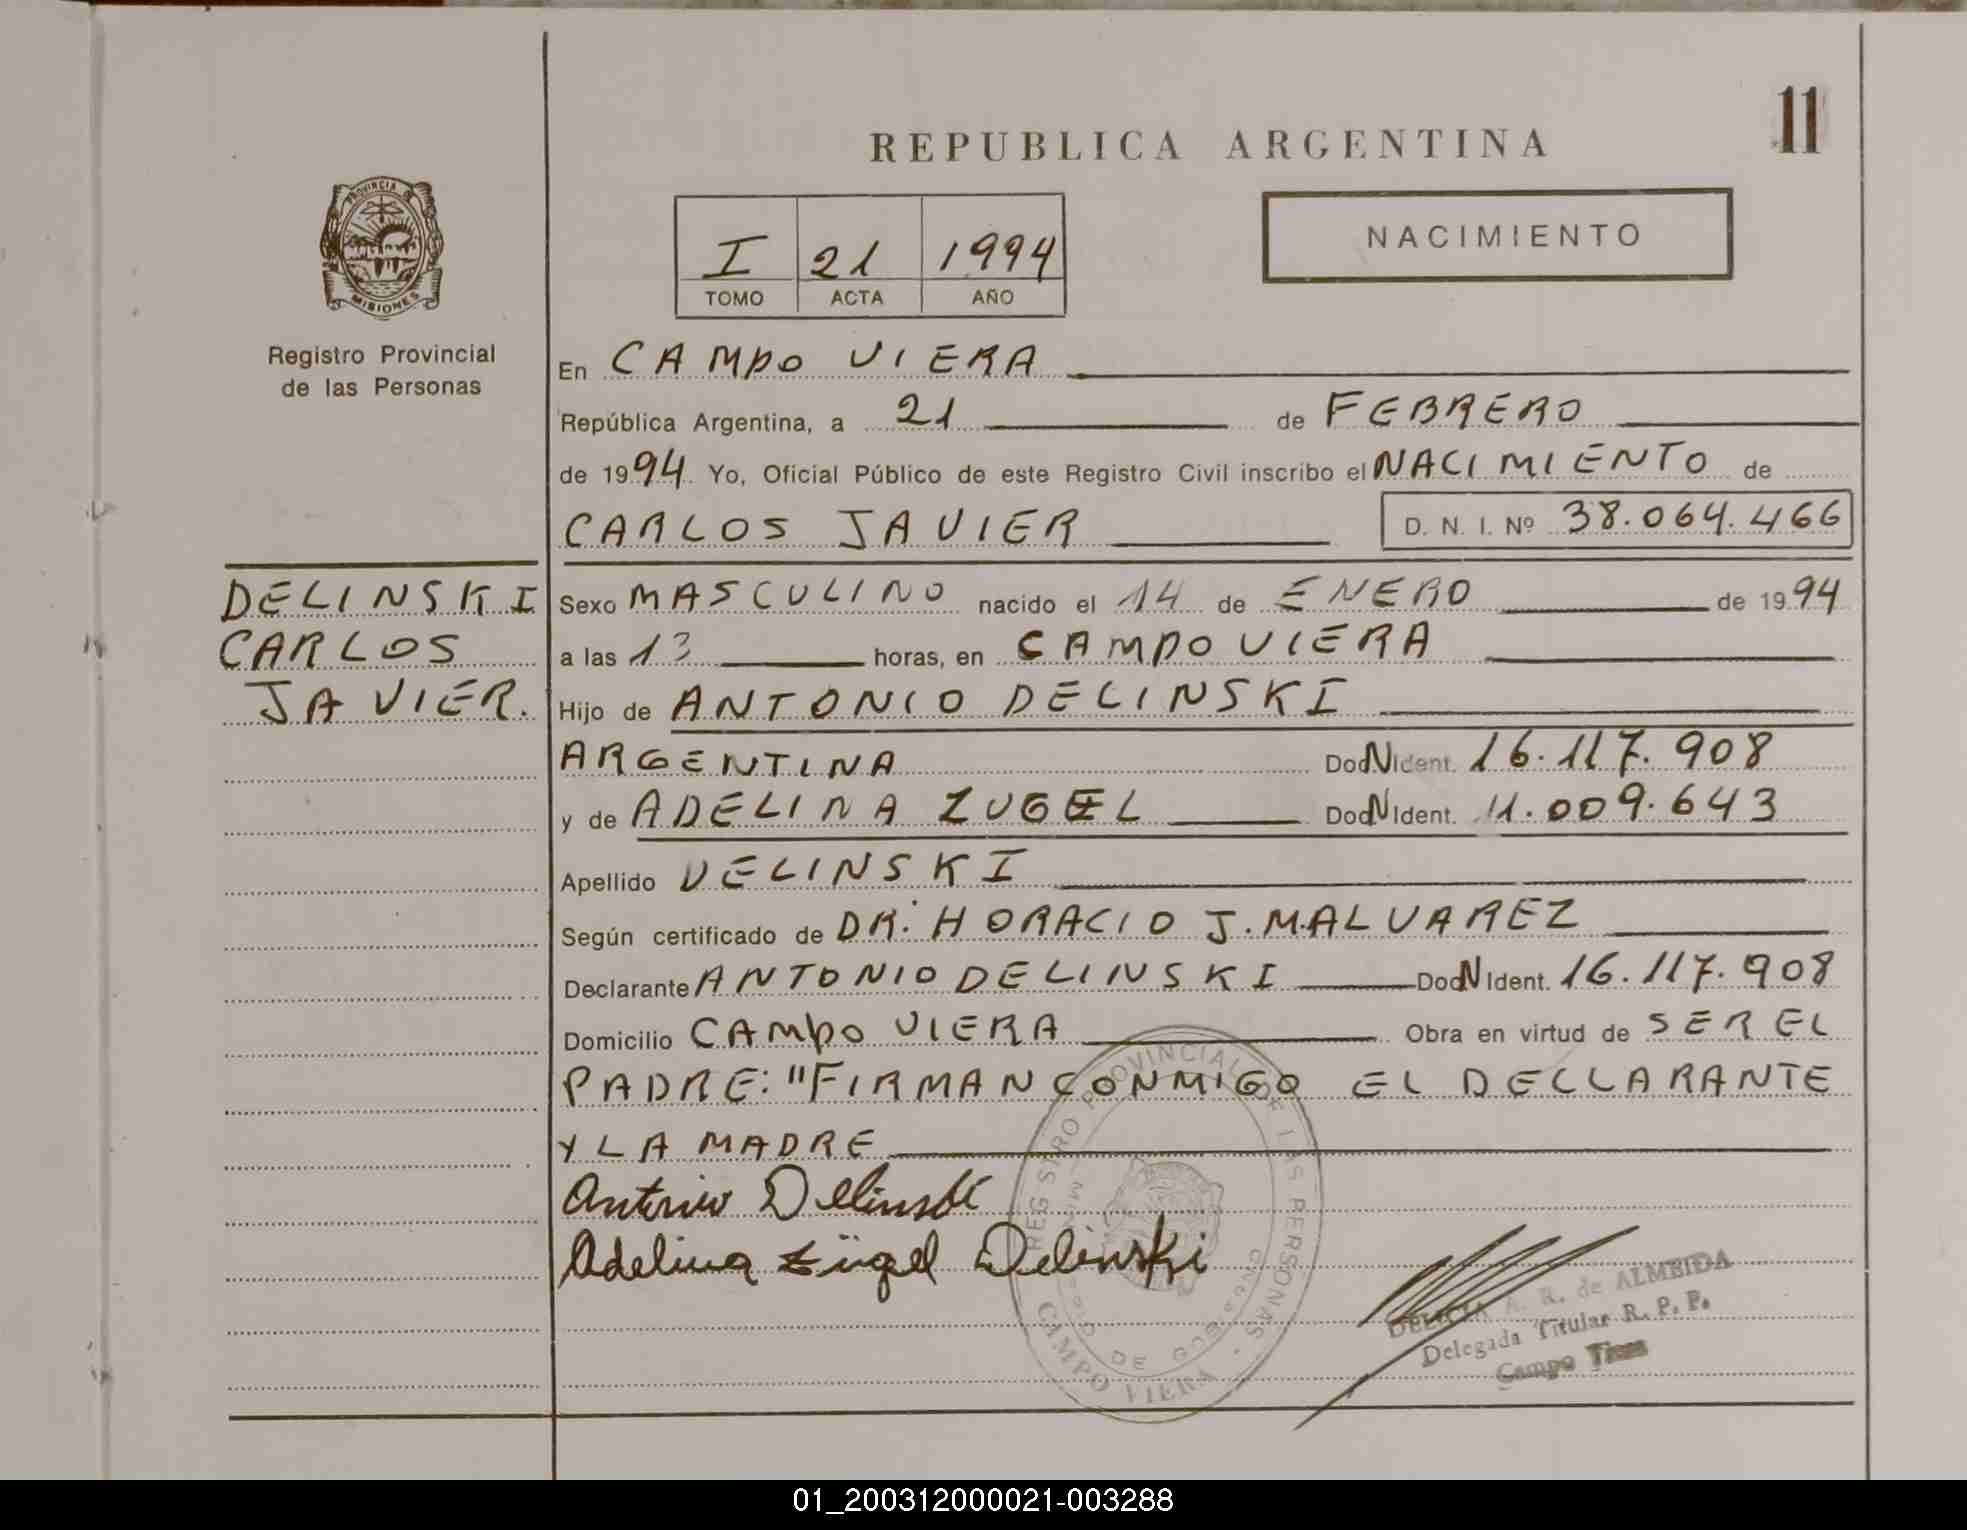 11
REPUBLICA ARGENTINA
PROVINCIA DE
MISIONES
I 21 1994
TOMO ACTA AÑO
NACIMIENTO
Registro Provincial
de las Personas
En CAMPO VIERA
República Argentina, a 21 de FEBRERO
de 1994 Yo, Oficial Público de este Registro Civil inscribo el NACIMIENTO de
CARLOS JAVIER D. N. I. Nº 38.064.466
DELINSKI
CARLOS
JAVIER.
Sexo MASCULINO nacido el 14 de ENERO de 1994
a las 13 horas, en CAMPO VIERA
Hijo de ANTONIO DELINSKI
ARGENTINA Doc N Ident. 16.117.908
y de ADELINA ZUGEL Doc N Ident. 11.009.643
Apellido DELINSKI
Según certificado de DR. HORACIO J. M. ALVAREZ
Declarante ANTONIO DELINSKI Doc N Ident. 16.117.908
Domicilio CAMPO VIERA Obra en virtud de SER EL
PADRE: "FIRMAN CONMIGO EL DECLARANTE
Y LA MADRE
Antonio Delinski
Adelina Zügel Delinski
REGISTRO PROVINCIAL DE LAS PERSONAS
DE GOBIERNO
CAMPO VIERA
DELICIA A. R. de ALMEIDA
Delegada Titular R. P. P.
Campo Viera
01_200312000021-003288